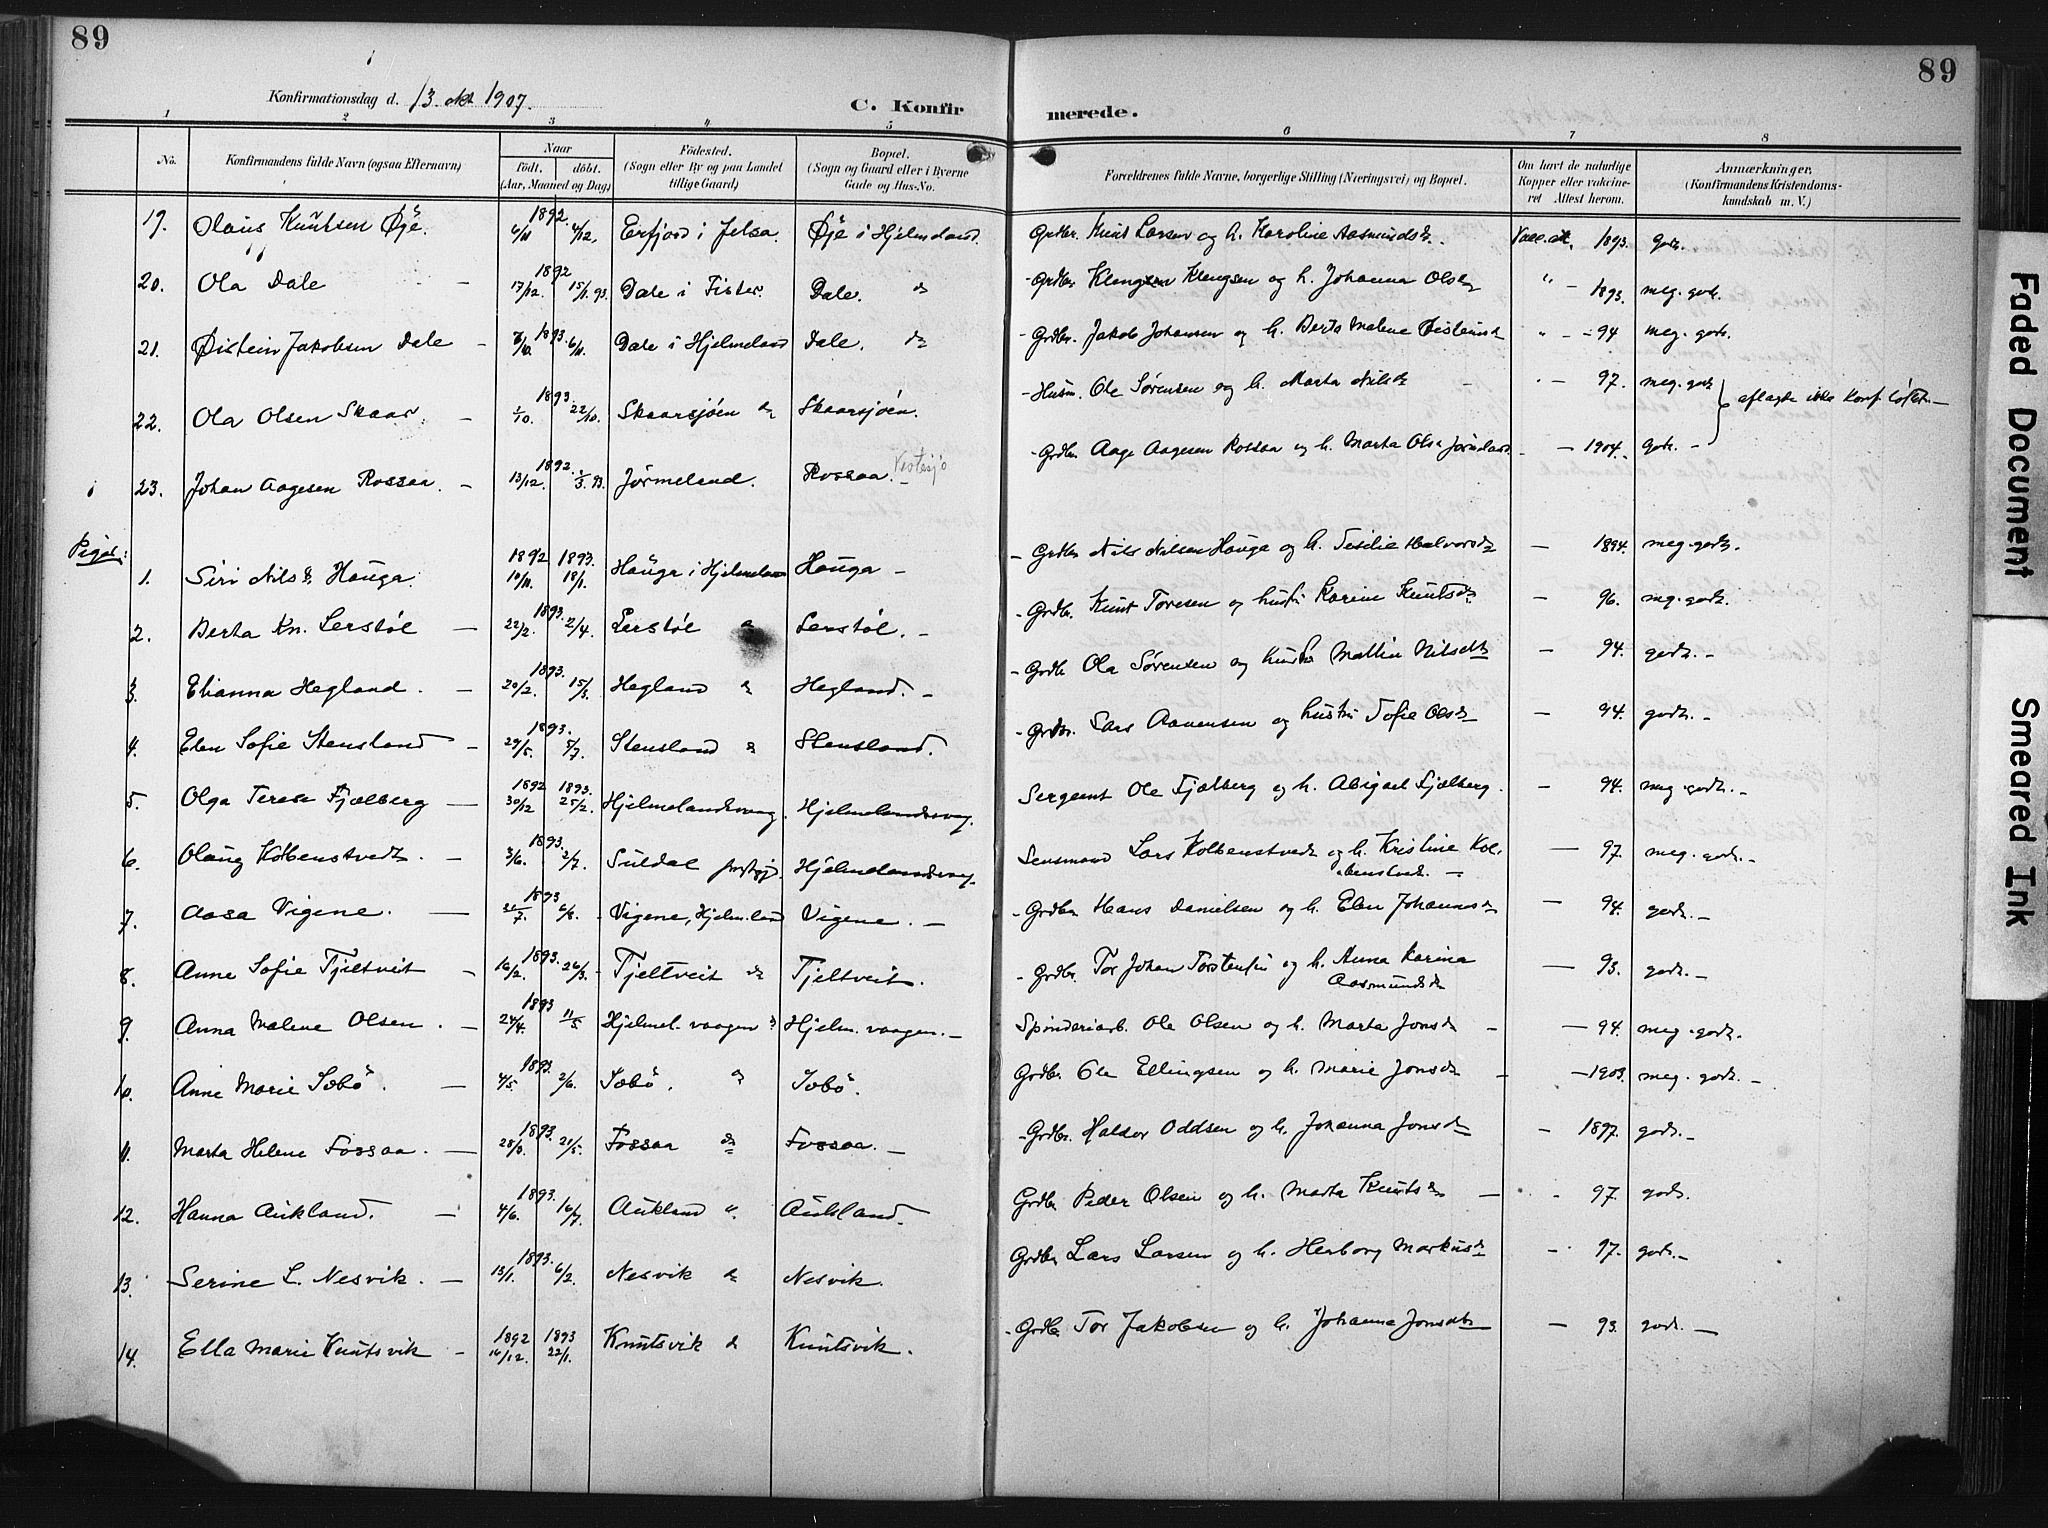 89
89
Konfirmationsdag d. 13. okt 1907.
C. Konfir merede.
1 2 3 4 5 6 7 8
No.
Konfirmandens fulde Navn (ogsaa Efternavn)
Naar
födt. döbt.
(Aar, Maaned og Dag)
Födested.
(Sogn eller By og paa Landet
tillige Gaard)
Bopæl.
(Sogn og Gaard eller i Byerne
Gade og Hus-No.
Forældrenes fulde Navne, borgerlige Stilling (Næringsvei) og Bopæl.
Om havt de naturlige
Kopper eller vakcine-
ret Attest herom.
Anmærkninger.
(Konfirmandens Kristendoms-
kundskab m. V.)
19. Olaus Knutsen Øje. 1892 6/11 4/12. Erfjord i Jelsa. Øje i Hjelmeland. Grdbr. Knut Larsen og h. Karoline Aasmundsd. Vacc. att. 1893. godt.
20. Ola Dale – 1892 17/12. 15/1. 93. Dale i Fister. Dale. do - Grdbr. Klengsen Klengsen og h. Johanna Olsd " – 1893. meg. godt.
21. Øistein Jakobsen Dale – 1893. 6/10. 6/11. Dale i Hjelmeland Dale. do - Grdbr. Jakob Johansen og h. Berta Malene Øisteinsd " – 94 meg. godt.
22. Ola Olsen Skaar. – 1893. 1/10. 22/10. Skaarsjöen do Skaarsjöen. - Husm. Ole Sørensen og h. Marta Nilsd – 97. meg. godt } aflagde ikke Konf. löftet. –
23. Johan Aagesen Rossaa. – 1892. 13/12. 2/3. 93. Jørmeland. Rossaa. Vestesjö - Grdbr. Aage Aagesen Rossaa og h. Marta Olsd Jørmeland – 1904. godt. –
Piger:
1. Siri Nilsd. Hauga. 1892 10/11. 1893. 18/1. Hauga i Hjelmeland Hauga – - Grdbr. Nils Nilsen Hauga og h. Sesilie Halvorsd – 1894. meg. godt.
2. Berta Kn. Lerstøl – 1893. 22/2. 2/4. Lerstøl do Lerstøl. – - Grdbr. Knut Toresen og hustru Karine Knutsd – 96. mg. godt.
3. Elianna Hegland. – 1893. 20/2. 15/3. Hegland do Hegland. – - Grdbr. Ola Sørensen og hustru Mallin Nilsdt – 94. godt. –
4. Elen Sofie Stensland – 1893. 29/5. 5/7. Stensland do Stensland. - Grdbr. Lars Aanensen og hustru Sofie Olsd – 94. godt. –
5. Olga Terese Fjælberg – 1892 30/12 1893. 25/2. Hjelmelandsvag. Hjelmelandsvag. Sergeant Ole Fjælberg og h. Abigael Fjælberg. – 94. meg. godt. –
6. Olaug Kolbenstvedt. – 1893. 3/6. 2/7. Suldal prestgj. Hjelmelandsvag. Lensmand Lars Kolbenstvedt og h. Kristine Kol-
benstvedt. – – 97. meg. godt. –
7. Aasa Vigene. – 1893 21/7. 6/8. - Vigene, Hjelmeland Vigene. – - Grdbr. Hans Danielsen og h. Elen Johannesd – 94. godt. –
8. Anne Sofie Tjeltveit – 1893. 16/2. 26/3. - Tjeltveit do Tjeltveit. - Grdbr. Tor Johan Torstensen og h. Anna Karina
Aasmundsd – 93. godt. –
9. Anna Malene Olsen. – 1893 24/4. 11/5. Hjelmel. vaagen do Hjelm. vaagen. – Spinderiarb. Ole Olsen og h. Marta Jonsd – – 94. meg. godt.
10. Anne Marie Söbö. – 1893. 4/5. 2/6. Söbö. do Söbö. Grdbr. Ole Ellingsen og h. Marie Jonsd – – 1903. meg. godt. –
11. Marta Helene Fossaa. – 1893. 28/3. 21/5. Fossaa do Fossaa. – - Grdbr. Haldor Oddsen og h. Johanna Jonsd – 1897. godt. –
12. Hanna Aukland. – 1893. 4/6. 16/7. Aukland ". Aukland. Grdbr. Peder Olsen og h. Marta Knutsd – 97. godt.
13. Serine L. Nesvik. – 1893. 13/1. 6/2. Nesvik do Nesvik. Grdbr. Lars Larsen og h. Herborg Markusd – 97. godt. –
14. Ella Marie Knutsvik – 1892 16/12. 1893 22/1. Knutsvik do Knutsvik. - Grdbr. Tor Jakobsen og h. Johanna Jonsdt – 93. godt. –
Faded Document
Smeared Ink